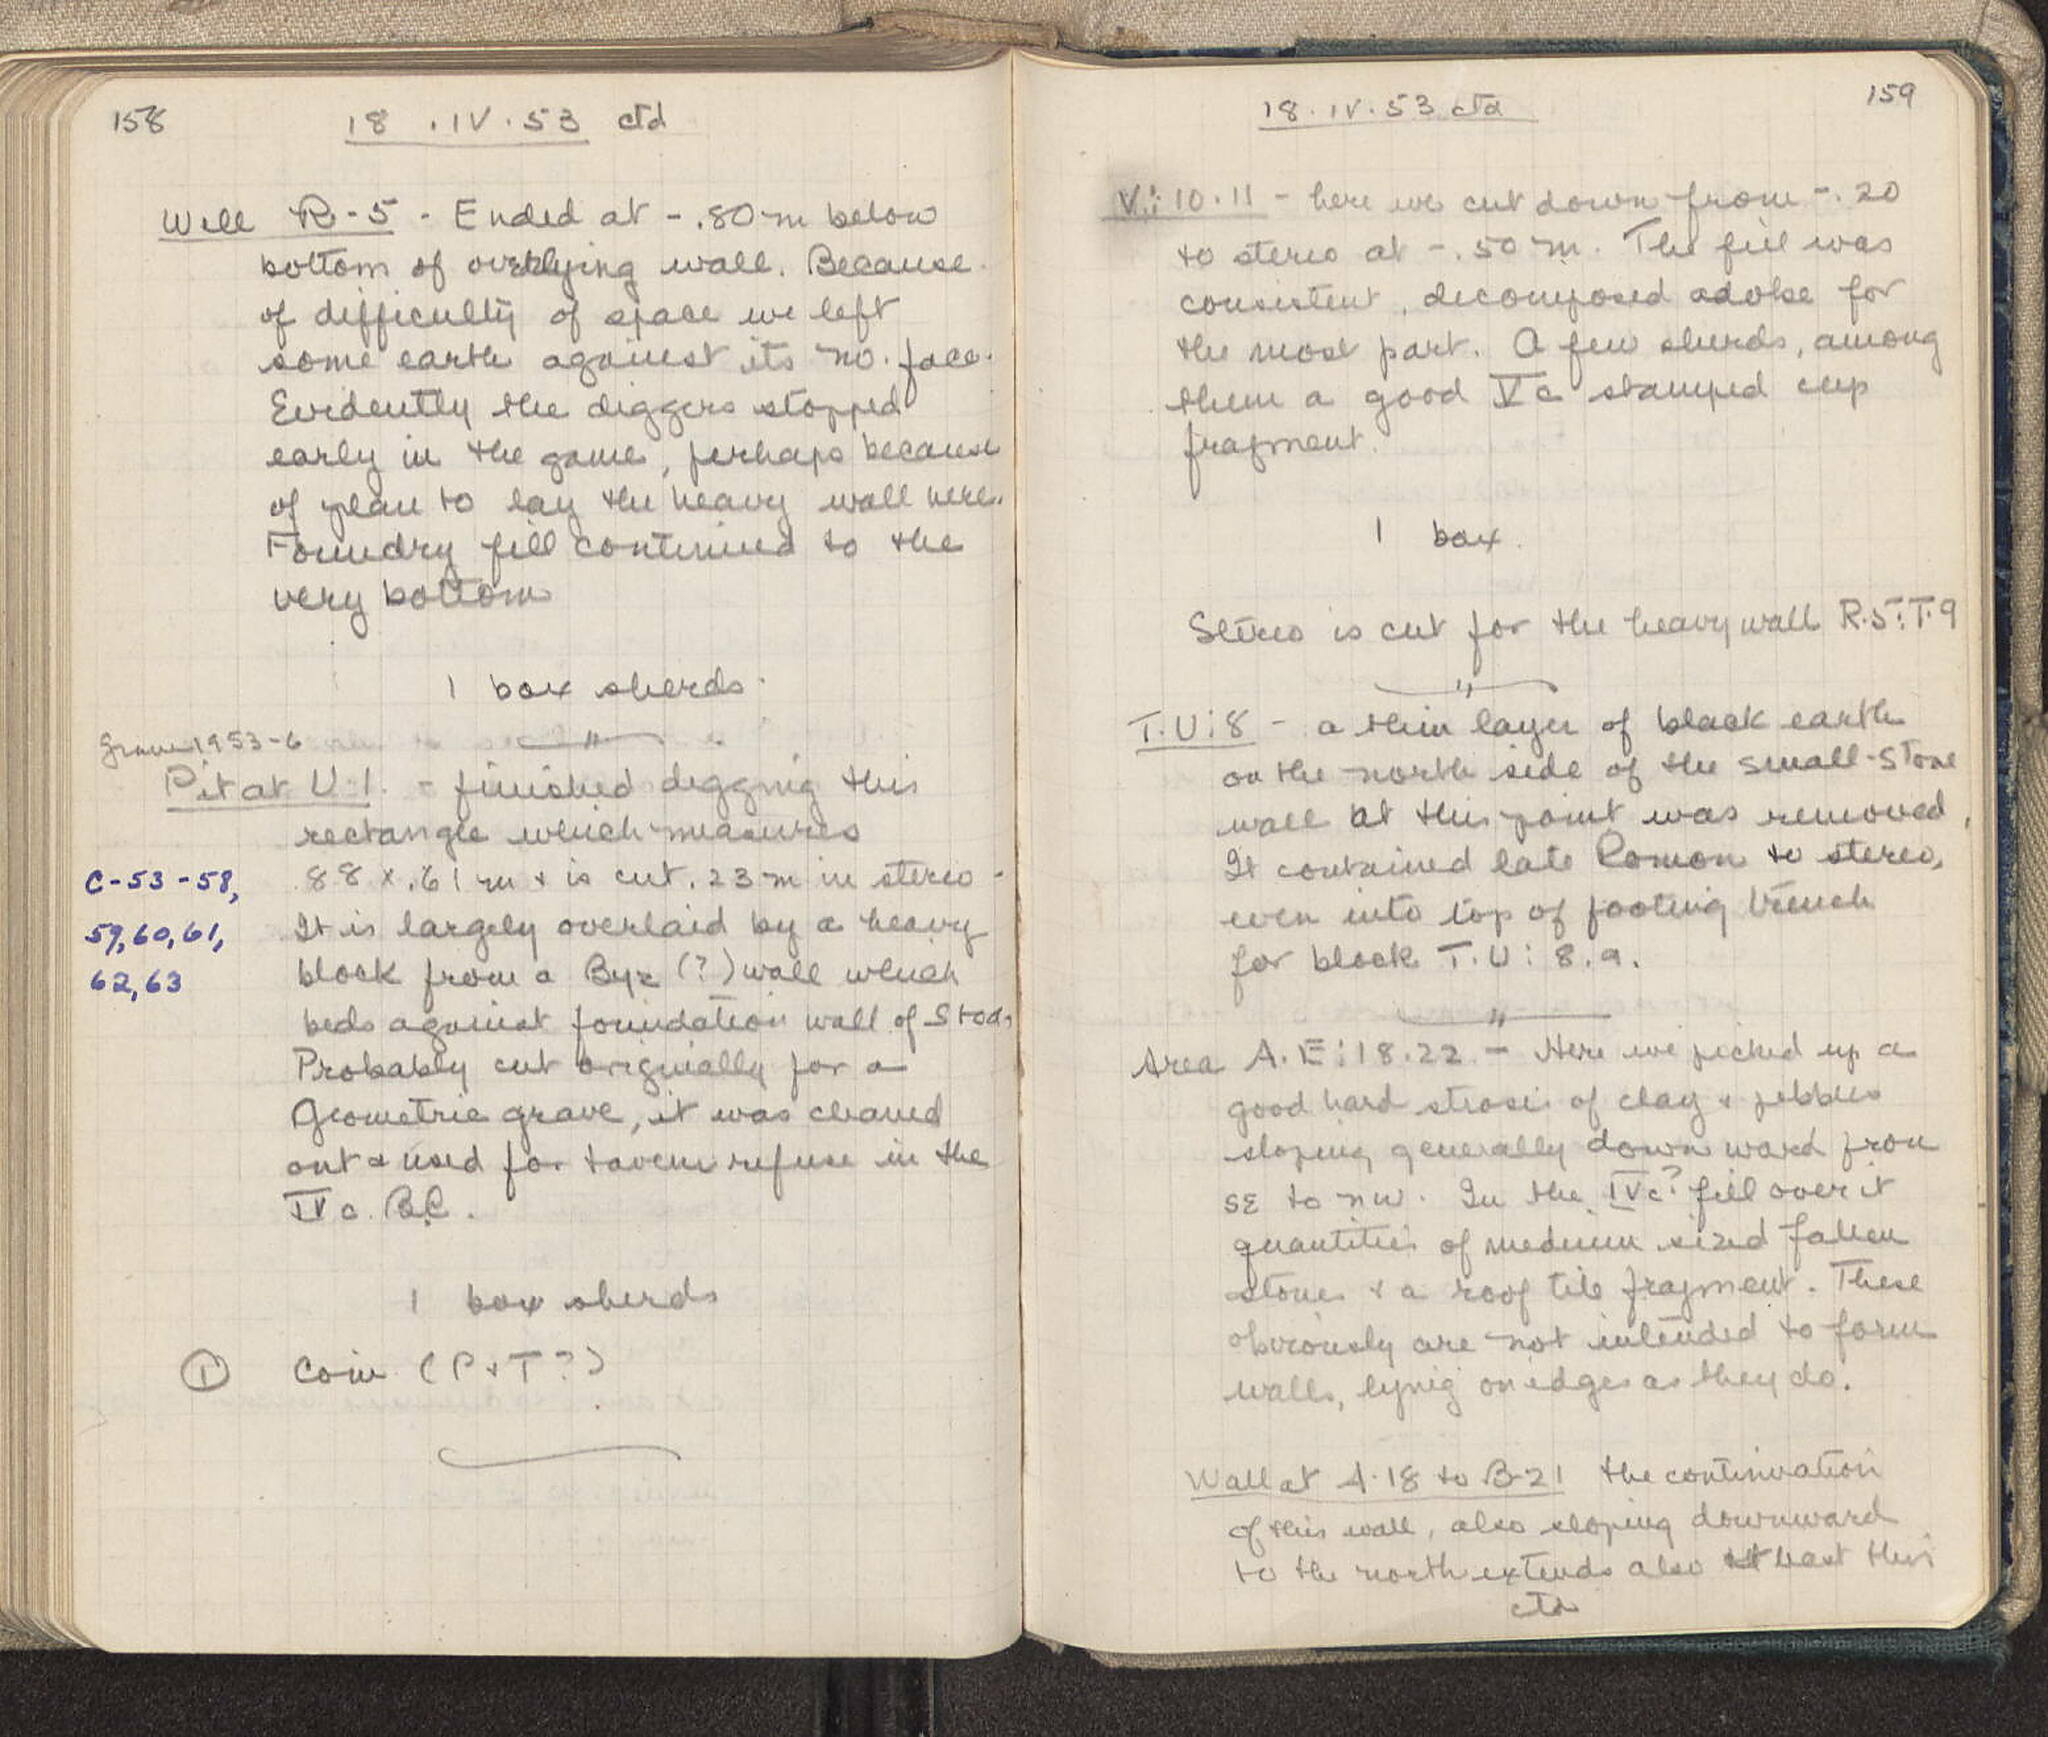 158
18 . IV . 53 ctd
Well R-5 - Ended at -.80 m below
bottom of overlying wall. Because
of difficulty of space we left
some earth against its no. face.
Evidently the diggers stopped
early in the game, perhaps because
of plan to lay the heavy wall here.
Foundry fill continued to the
very bottom
1 box sherds.
"
Grave 1953-6
Pit at U-1. - finished digging this
rectangle which measures
C-53-58,
.88 x .61 m & is cut .23 m in stereo -
59,60,61,
It is largely overlaid by a heavy
62,63
block from a Byz (?) wall which
beds against foundation wall of Stoa.
Probably cut originally for a
Geometric grave, it was cleaned
out & used for tavern refuse in the
IV c. B.C.
1 box sherds
① Coin (P & T?)
159
18. IV. 53 ctd
V:10.11 - here we cut down from -.20
to stereo at -.50 m. The fill was
consistent, decomposed adobe for
the most part. A few sherds, among
them a good V c stamped cup
fragment.
1 box.
Stereo is cut for the heavy wall R.5:T.9
"
T.U:8 - a thin layer of black earth
on the north side of the small-stone
wall at this point was removed.
It contained late Roman to stereo,
even into top of footing trench
for block T.U: 8.9.
"
Area A.E:18.22 - Here we picked up a
good hard strosis of clay & pebbles
sloping generally downward from
SE to NW. In the IVc? fill over it
quantities of medium sized fallen
stones & a roof tile fragment. These
obviously are not intended to form
walls, lying on edges as they do.
Wall at A-18 to B-21 the continuation
of this wall, also sloping downward
to the north extends also at least this
ctd